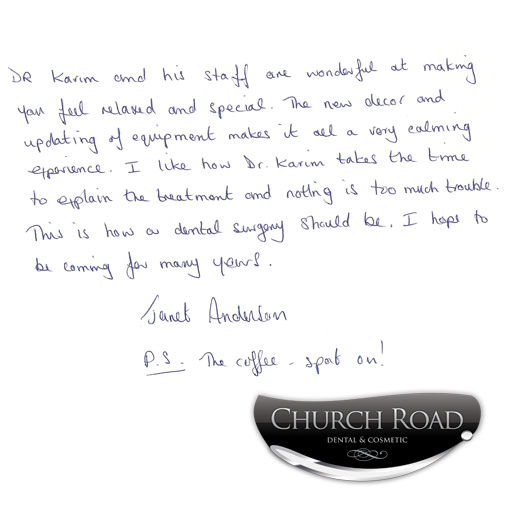 DR Karim and his staff are wonderful at making
you feel relaxed and special. The new decor and
updating of equipment makes it all a very calming
experience. I like how Dr. Karim takes the time
to explain the treatment and nothing is too much trouble.
This is how a dental surgery should be. I hope to
be coming for many years.
Janet Anderson
P.S. The coffee - spot on!
CHURCH ROAD
DENTAL & COSMETIC